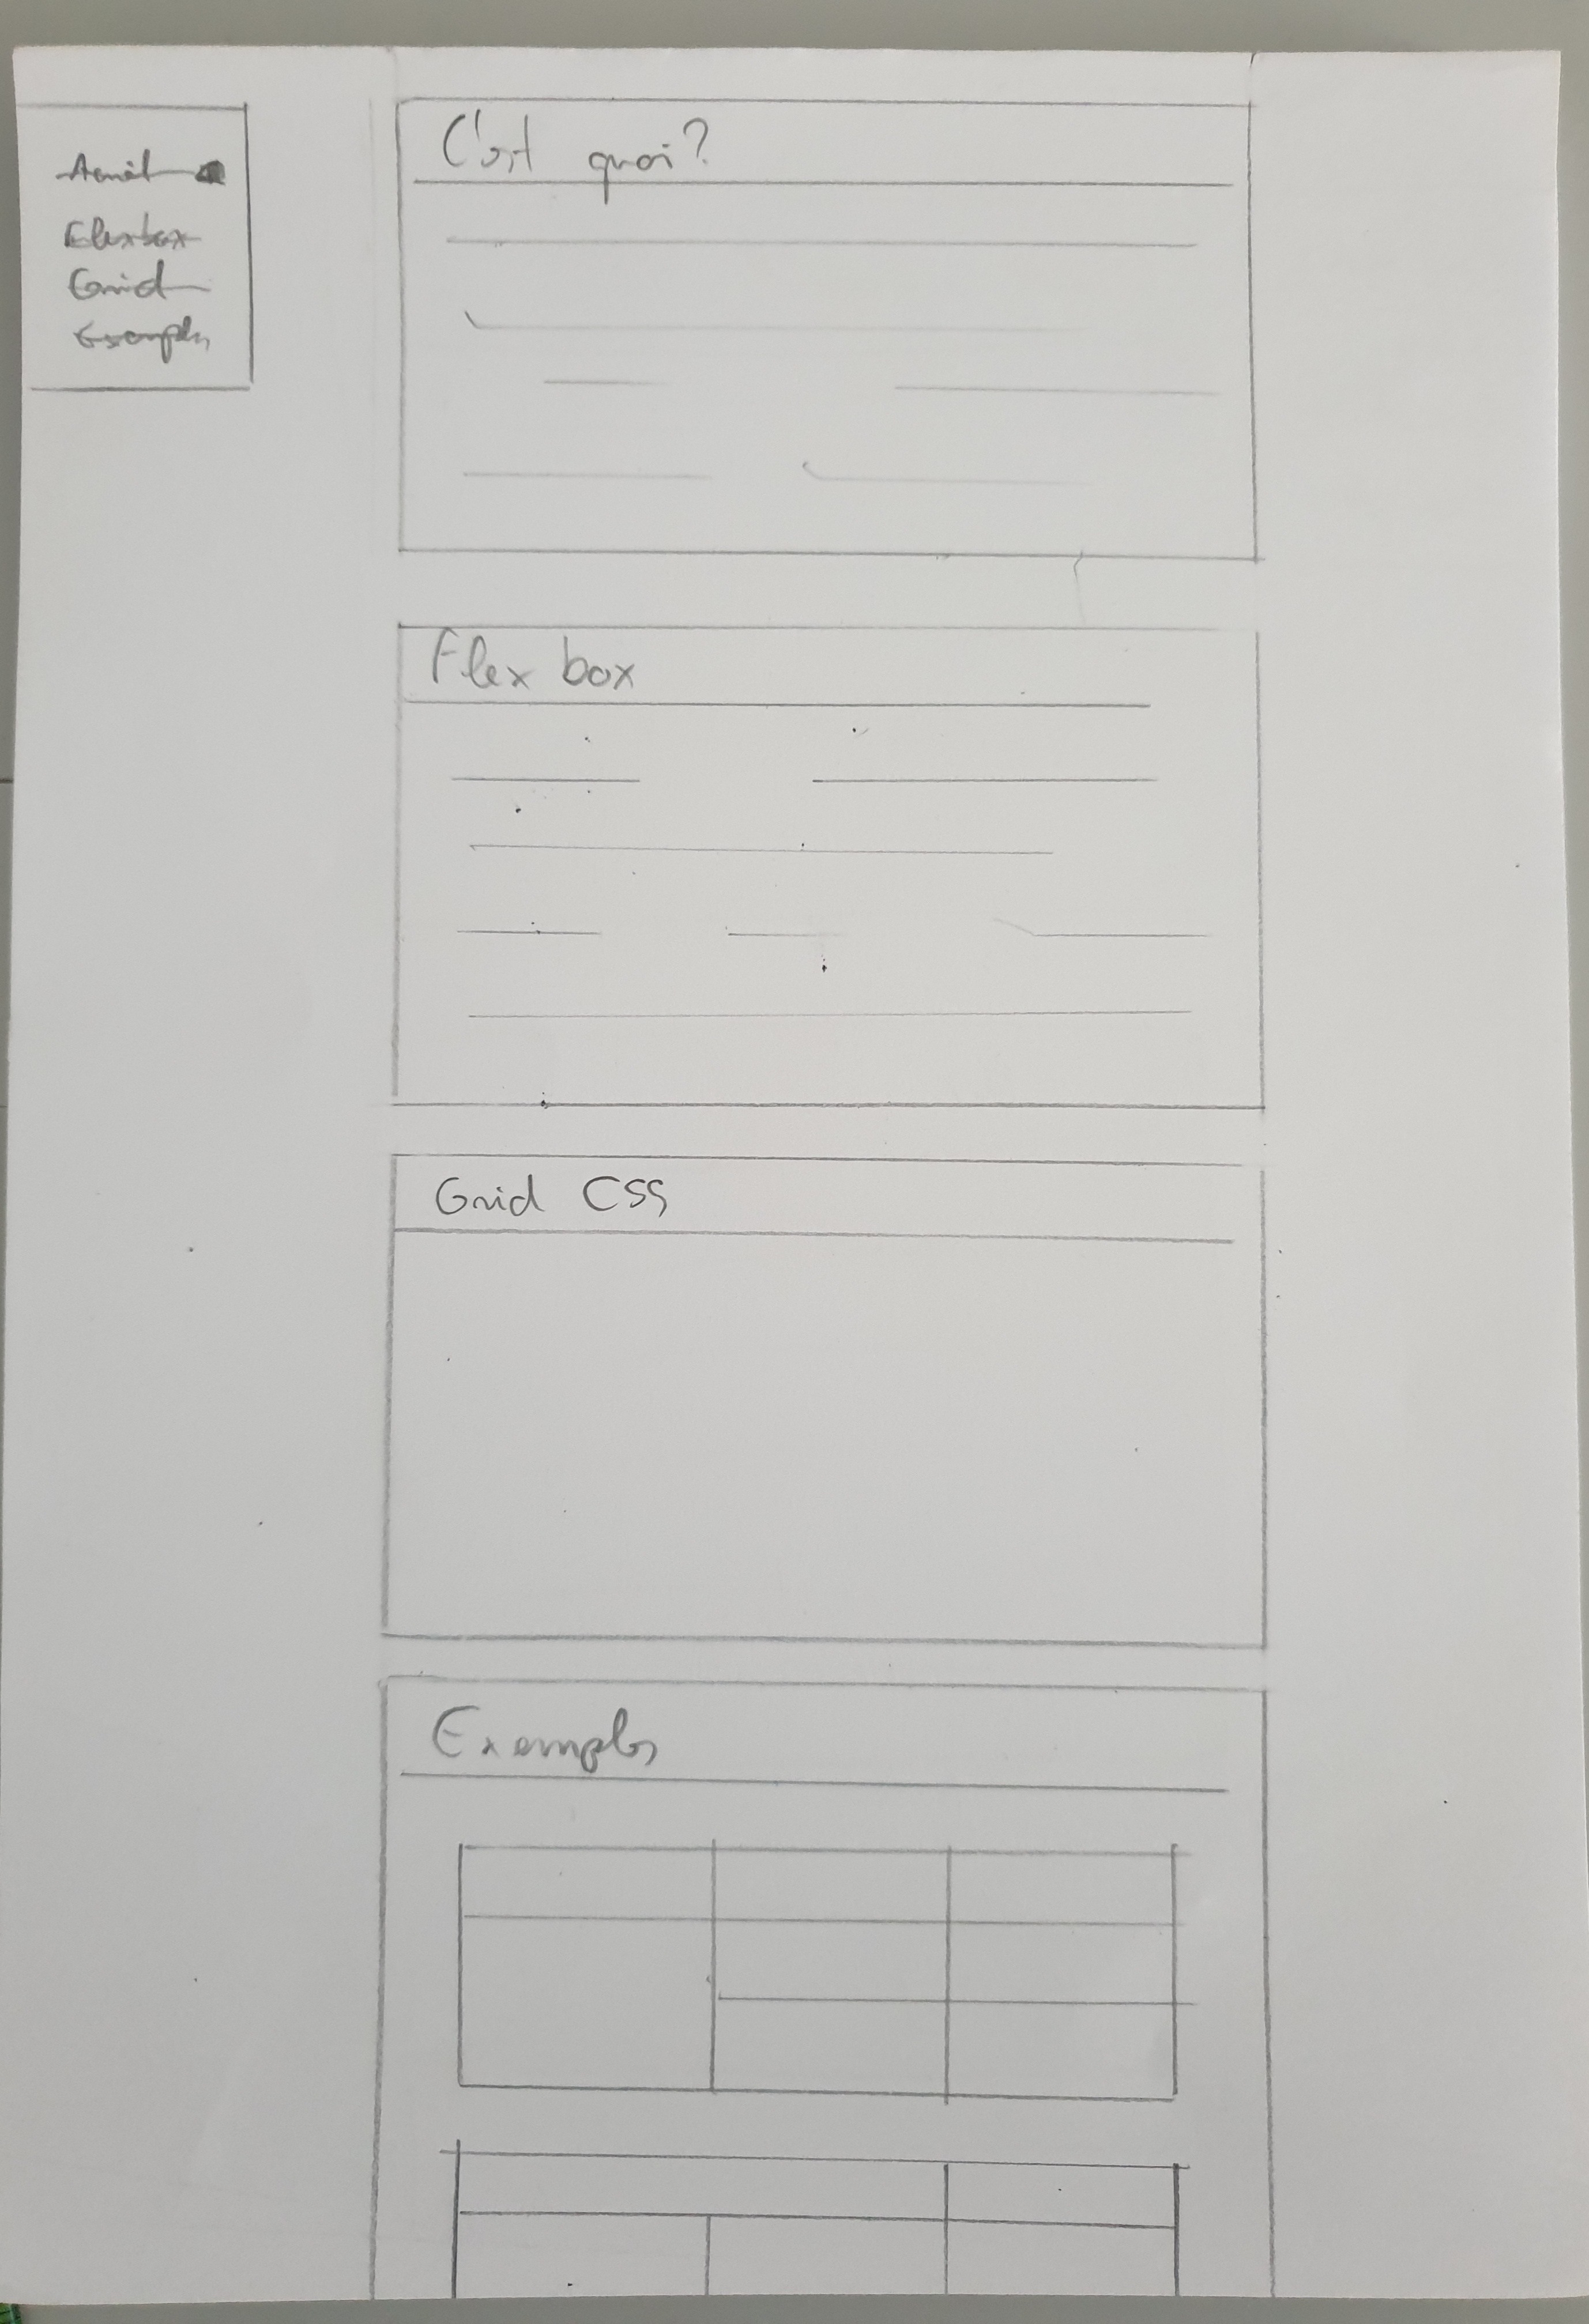 Flexbox
Grid
Exemples
C'est quoi?
Flex box
Grid CSS
Exemples